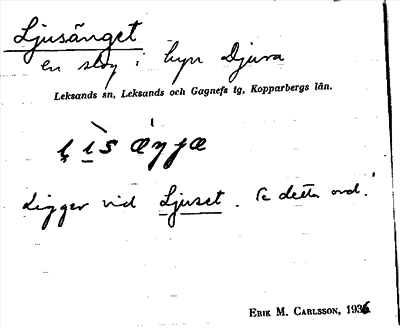 Ljusänget
en slog i byn Djura
Leksands sn, Leksands och Gagnefs tg, Kopparbergs län.
Ligger vid Ljuset. Se detta ord.
ERIK M. CARLSSON, 1936